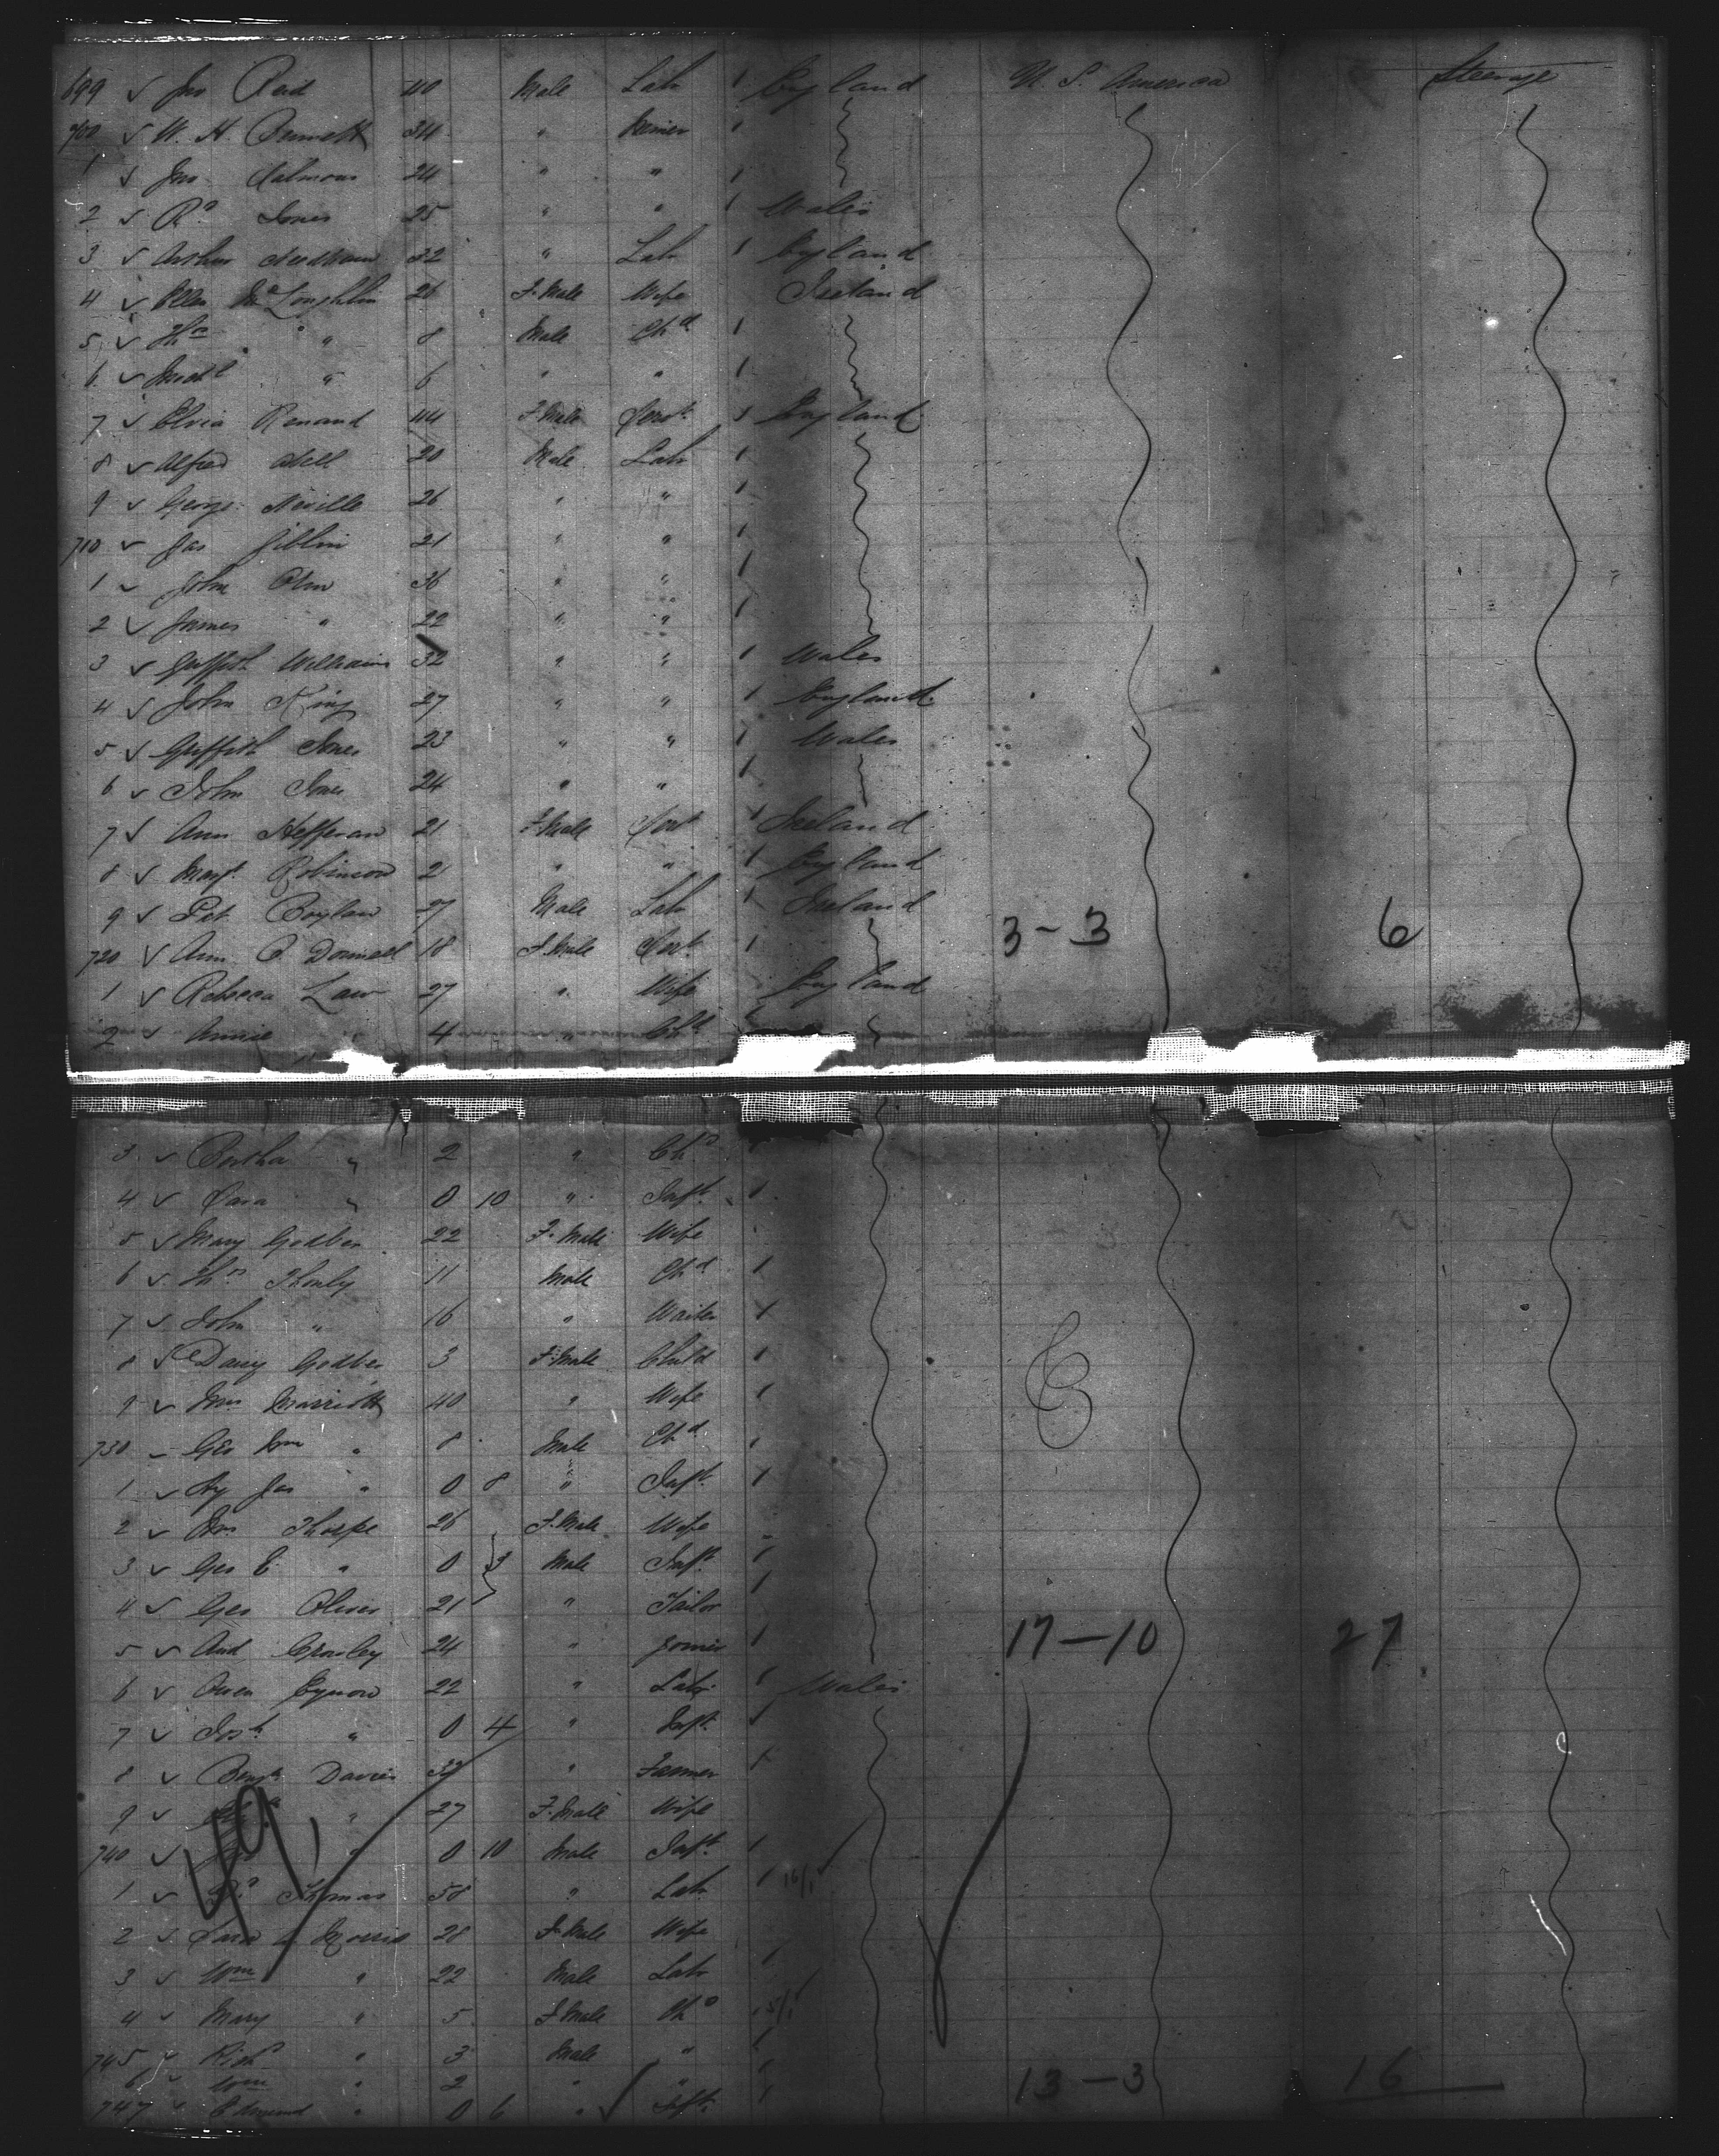 699 ✓ Jno Reid 40 Male Lab 1 England U. S. America Steerage
700 ✓ W. H. Bennett 34 " 1
1 ✓ Jno 24 " " 1
2 ✓ Rd Jones 25 " " 1 Wales
3 ✓ Arthur Needham 32 " Lab 1 England
4 ✓ Ellen McLoughlin 26 F. Male Wife Ireland
5 ✓ Ths " 8 Male Chd 1
6 ✓ " 6 " " 1
7 ✓ Renand 44 F. Male Servt 1 England
8 ✓ Alfred 20 Male Lab 1
9 ✓ George Neville 26 " " 1
710 ✓ Jas Giblin 21 " " 1
1 ✓ John 36 " " 1
2 ✓ James " 22 " " 1
3 ✓ Griffith Williams 32 " " 1 Wales
4 ✓ John King 27 " " 1 England
5 ✓ Griffith Jones 23 " " 1 Wales
6 ✓ John Jones 24 " " 1
7 ✓ Ann Hefferan 21 F. Male Servt 1 Ireland
8 ✓ Margt Robinson 21 " " 1 England
9 ✓ Pat Boylan 27 Male Lab 1 Ireland 3-3 6
720 ✓ Ann O Donnell 18 F. Male Servt 1
1 ✓ Rebecca Law 27 " Wife England
2 ✓ Annie " 4 " Chd
3 ✓ Bertha " 2 " Chd
4 ✓ Sara " 0 10 " Inft 1
5 ✓ Mary Godber 22 F. Male Wife
6 ✓ Ths 11 Male Chd 1
7 ✓ John " 16 " Waiter 1
8 ✓ Daisy Godber 3 F. Male Child 1
9 ✓ Marriott 40 " Wife 1
730 Geo Wm " 8 Male Chd 1
1 ✓ Hy Jas " 0 8 " Inft 1
2 ✓ Thorpe 26 F. Male Wife
3 ✓ Geo E " 0 3 Male Inft 1
4 ✓ Geo Oliver 21 " Tailor 1
5 ✓ And Crowley 24 " Joiner 1 17-10 27
6 ✓ Owen Eynon 22 " Lab 1 Wales
7 ✓ Josh " 0 4 " Inft
8 ✓ Benjn Davies 32 " Farmer 1
9 ✓ " 27 F. Male Wife
740 ✓ " 0 10 Male Inft 1
1 ✓ Thomas 58 " Lab 1
2 ✓ Sara A Morris 28 F. Male Wife
3 ✓ Wm " 22 Male Lab 1
4 ✓ Mary " 5 F. Male Chd
745 ✓ Richd " 3 Male " 1
6 ✓ Wm " 2 " " 1 13-3 16
747 ✓ Edmund " 0 6 " Inft 1
49,